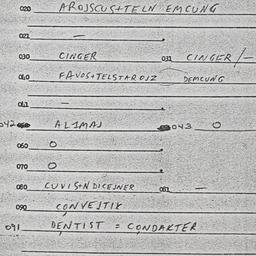 020 AROJSCUS+TELN EMCUNG
021 —
030 CINGER 031 CINGER/—
040 FAVOS+TELSTAROJZ DEMCUNG
041 —
042 ALIMAJ 043 O
060 O
070 O
080 CUVISN DICEJNER 081 —
090 CONVEJTIK
091 DENTIST = CONDAKTER